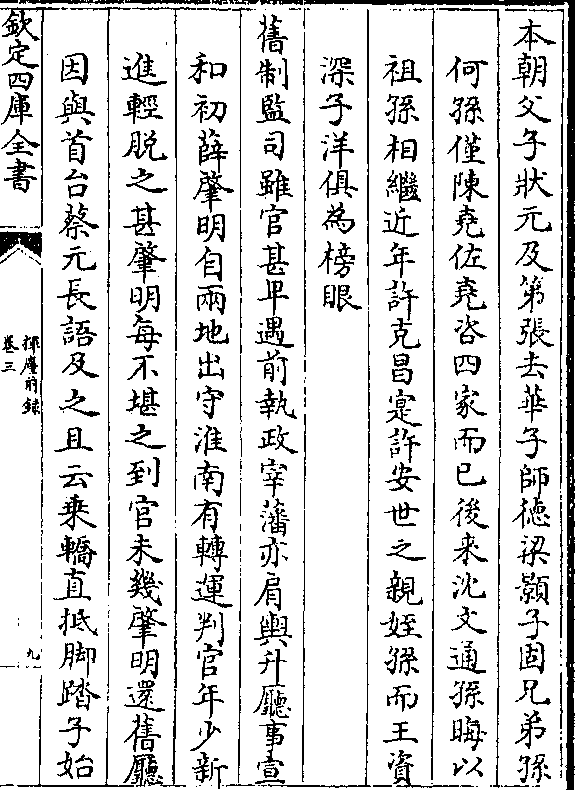 本朝父子狀元及第張去華子師德梁顥子固兄弟孫
何孫僅陳堯佐堯咨四家而已後来沈文通孫晦以
祖孫相繼近年許克昌寔許安世之親姪孫而王資
深子洋俱為榜眼
舊制監司雖官甚卑遇前執政宰藩亦肩輿升廳事宣
和初薛肇明自兩地出守淮南有轉運判官年少新
進輕脱之甚肇明每不堪之到官未幾肇明還舊廳
因與首台蔡元長語及之且云乗轎直抵脚踏子始
欽定四庫全書
揮麈前録
卷三
九